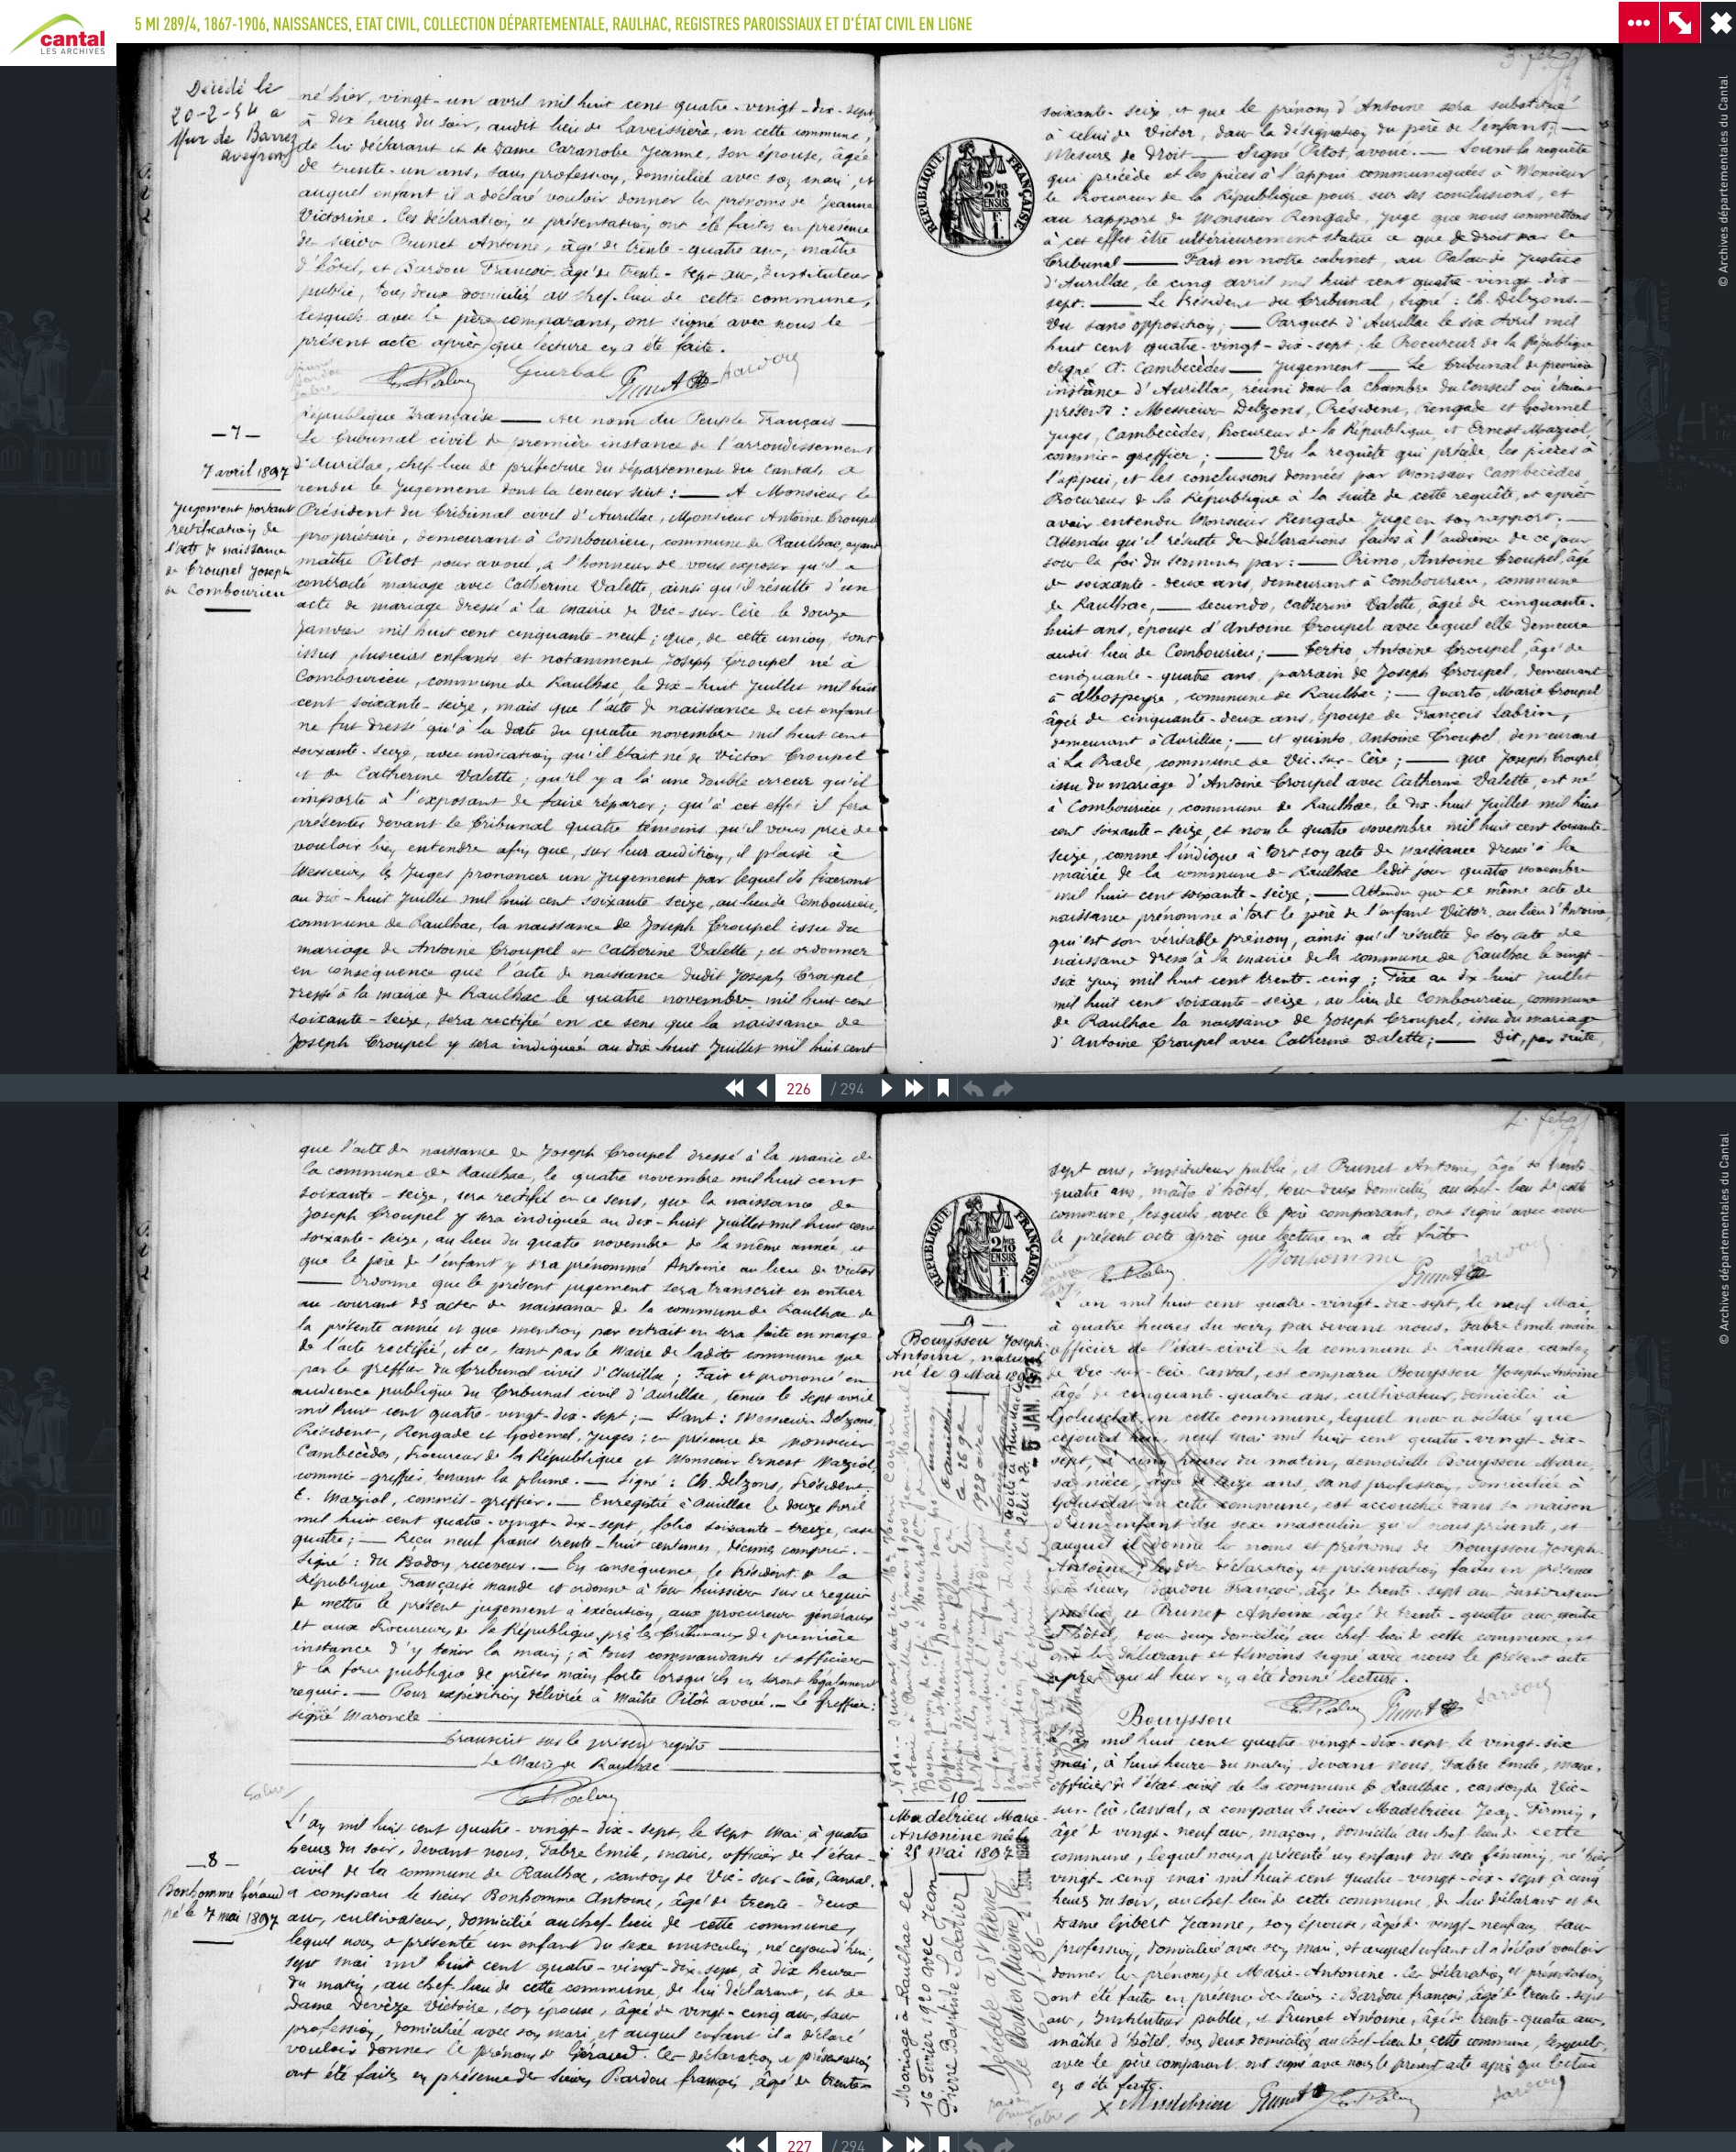 cantal
LES ARCHIVES
5 MI 289/4, 1867-1906, NAISSANCES, ETAT CIVIL, COLLECTION DÉPARTEMENTALE, RAULHAC, REGISTRES PAROISSIAUX ET D'ÉTAT CIVIL EN LIGNE
Décédé le
20-2-54 a
Mur de Barrez
Aveyron
né hier, vingt-un avril mil huit cent quatre-vingt-dix-sept
à dix heures du soir, audit lieu de Laveissière, en cette commune,
de lui déclarant et de Dame Caranobe Jeanne, son épouse, âgée
de trente-un ans, sans profession, domiciliée avec son mari, et
auquel enfant il a déclaré vouloir donner les prénoms de Jeanne
Victorine. Ces déclaration et présentation ont été faites en présence
de sieurs Prunet Antoine, âgé de trente-quatre ans, maître
d'hôtel, et Bardou François, âgé de trente-sept ans, Instituteur
public, tous deux domiciliés au chef-lieu de cette commune,
lesquels avec le père comparant, ont signé avec nous le
présent acte après que lecture en a été faite.
Guirbal Prunet Bardou
République Française — Au nom du Peuple Français —
— 7 —
7 avril 1897
Jugement portant
rectification de
l'acte de naissance
de Croupel Joseph
de Combourieu
Le Tribunal civil de première instance de l'arrondissement
d'Aurillac, chef-lieu de préfecture du département du Cantal, a
rendu le Jugement dont la teneur suit : — A Monsieur le
Président du Tribunal civil d'Aurillac, Monsieur Antoine Croupel
propriétaire, demeurant à Combourieu, commune de Raulhac, ayant
maître Pitot pour avoué, a l'honneur de vous exposer qu'il a
contracté mariage avec Catherine Valette, ainsi qu'il résulte d'un
acte de mariage dressé à la mairie de Vic-sur-Cère le douze
Janvier mil huit cent cinquante-neuf ; que, de cette union, sont
issus plusieurs enfants et notamment Joseph Croupel né à
Combourieu, commune de Raulhac, le dix-huit Juillet mil huit
cent soixante-seize, mais que l'acte de naissance de cet enfant
ne fut dressé qu'à la date du quatre novembre mil huit cent
soixante-seize, avec indication qu'il était né de Victor Croupel
et de Catherine Valette ; qu'il y a là une double erreur qu'il
importe à l'exposant de faire réparer ; qu'à cet effet il fera
présenter devant le Tribunal quatre témoins qu'il vous prie de
vouloir bien entendre afin que, sur leur audition, il plaise à
Messieurs les Juges prononcer un jugement par lequel ils fixeront
au dix-huit Juillet mil huit cent soixante-seize, au lieu de Combourieu,
commune de Raulhac, la naissance de Joseph Croupel issu du
mariage de Antoine Croupel et Catherine Valette ; et ordonner
en conséquence que l'acte de naissance dudit Joseph Croupel
dressé à la mairie de Raulhac le quatre novembre mil huit cent
soixante-seize, sera rectifié en ce sens que la naissance de
Joseph Croupel y sera indiquée au dix-huit Juillet mil huit cent
RÉPUBLIQUE FRANÇAISE
2/10
EN SUS
soixante-seize, et que le prénom d'Antoine sera substitué
à celui de Victor, dans la désignation du père de l'enfant ; —
Mesure de Droit — Signé Pitot, avoué. — Soient la requête
qui précède et les pièces à l'appui communiquées à Monsieur
le Procureur de la République pour, sur ses conclusions, et
au rapport de Monsieur Rengade, Juge que nous commettons
à cet effet être ultérieurement statué ce que de droit par le
Tribunal — Fait en notre cabinet, au Palais de Justice
d'Aurillac, le cinq avril mil huit cent quatre-vingt-dix-
sept. — Le Président du Tribunal, Signé : Ch. Delzons. —
Vu sans opposition ; — Parquet d'Aurillac le six Avril mil
huit cent quatre-vingt-dix-sept ; le Procureur de la République
Signé A. Cambecèdes — Jugement — Le Tribunal de première
instance d'Aurillac, réuni dans la chambre du Conseil où étaient
présents : Messieurs Delzons, Président, Rengade et Godemel
Juges, Cambecèdes, Procureur de la République, et Ernest Mazial
commis-greffier ; — Vu la requête qui précède, les pièces à
l'appui, et les conclusions données par Monsieur Cambecèdes
Procureur de la République à la suite de cette requête, et après
avoir entendu Monsieur Rengade Juge en son rapport. —
Attendu qu'il résulte des déclarations faites à l'audience de ce jour
sous la foi du serment par : — Primo, Antoine Croupel, âgé
de soixante-deux ans, demeurant à Combourieu, commune
de Raulhac, — secundo, Catherine Valette, âgée de cinquante-
huit ans, épouse d'Antoine Croupel avec lequel elle demeure
audit lieu de Combourieu ; — Tertio, Antoine Croupel, âgé de
cinquante-quatre ans, parrain de Joseph Croupel, demeurant
à Albospeyre, commune de Raulhac ; — Quarto, Marie Croupel
âgée de cinquante-deux ans, épouse de François Labrin,
demeurant à Aurillac ; — et quinto, Antoine Croupel, demeurant
à La Prade, commune de Vic-sur-Cère ; — que Joseph Croupel
issu du mariage d'Antoine Croupel avec Catherine Valette, est né
à Combourieu, commune de Raulhac, le dix-huit Juillet mil huit
cent soixante-seize, et non le quatre novembre mil huit cent soixante-
seize, comme l'indique à tort son acte de naissance dressé à la
mairie de la commune de Raulhac ledit jour quatre novembre
mil huit cent soixante-seize ; — Attendu que ce même acte de
naissance prénomme à tort le père de l'enfant Victor, au lieu d'Antoine
qui est son véritable prénom, ainsi qu'il résulte de son acte de
naissance dressé à la mairie de la commune de Raulhac le vingt-
six Juin mil huit cent trente-cinq ; Fixe au dix-huit Juillet
mil huit cent soixante-seize, au lieu de Combourieu, commune
de Raulhac la naissance de Joseph Croupel, issu du mariage
d'Antoine Croupel avec Catherine Valette ; — Dit, par suite,
© Archives départementales du Cantal
226 / 294
que l'acte de naissance de Joseph Croupel dressé à la mairie de
la commune de Raulhac, le quatre novembre mil huit cent
soixante-seize, sera rectifié en ce sens, que la naissance de
Joseph Croupel y sera indiquée au dix-huit Juillet mil huit cent
soixante-seize, au lieu du quatre novembre de la même année, et
que le père de l'enfant y sera prénommé Antoine au lieu de Victor
— Ordonne que le présent jugement sera transcrit en entier
au courant des actes de naissance de la commune de Raulhac de
la présente année et que mention par extrait en sera faite en marge
de l'acte rectifié, et ce, tant par le Maire de ladite commune que
par le greffier du Tribunal civil d'Aurillac ; Fait et prononcé en
audience publique du Tribunal civil d'Aurillac, tenue le sept avril
mil huit cent quatre-vingt-dix-sept ; — Séant : Messieurs Delzons,
Président, Rengade et Godemel, Juges ; en présence de Monsieur
Cambecèdes, Procureur de la République et Monsieur Ernest Mazial,
commis-greffier, tenant la plume. — Signé : Ch. Delzons, Président,
E. Mazial, commis-greffier. — Enregistré à Aurillac le douze Avril
mil huit cent quatre-vingt-dix-sept, folio soixante-treize, case
quatre ; — Reçu neuf francs trente-huit centimes, décimes compris. —
Signé : du Bodon, receveur. — En conséquence, le Président de la
République Française mande et ordonne à tous huissiers sur ce requis
de mettre le présent jugement à exécution, aux procureurs généraux
et aux Procureurs de la République près les Tribunaux de première
instance d'y tenir la main ; à tous commandants et officiers
de la force publique de prêter main forte lorsqu'ils en seront légalement
requis. — Pour expédition délivrée à Maître Pitot avoué. — Le greffier :
signé Maroncle
Transcrit sur le présent registre
Le Maire de Raulhac
— 8 —
Bonhomme Géraud
né le 7 mai 1897
L'an mil huit cent quatre-vingt-dix-sept, le sept Mai, à quatre
heures du soir, devant nous, Fabre Emile, maire, officier de l'état-
civil de la commune de Raulhac, canton de Vic-sur-Cère, Cantal,
a comparu le sieur Bonhomme Antoine, âgé de trente-deux
ans, cultivateur, domicilié au chef-lieu de cette commune,
lequel nous a présenté un enfant du sexe masculin, né cejourd'hui
sept mai mil huit cent quatre-vingt-dix-sept, à dix heures
du matin, au chef-lieu de cette commune, de lui déclarant, et de
Dame Devèze Victoire, son épouse, âgée de vingt-cinq ans, sans
profession, domiciliée avec son mari, et auquel enfant il a déclaré
vouloir donner le prénom de Géraud. Ces déclaration et présentation
ont été faites en présence des sieurs Bardou François, âgé de trente-
RÉPUBLIQUE FRANÇAISE
2/10
EN SUS
sept ans, Instituteur public, et Prunet Antoine, âgé de trente-
quatre ans, maître d'hôtel, tous deux domiciliés au chef-lieu de cette
commune, lesquels, avec le père comparant, ont signé avec nous
le présent acte après que lecture en a été faite
Bonhomme Prunet Bardou
— 9 —
Bouyssou Joseph
Antoine, naturel
né le 9 Mai 1897
5 JAN. 197
L'an mil huit cent quatre-vingt-dix-sept, le neuf Mai
à quatre heures du soir, par devant nous, Fabre Emile maire
officier de l'état-civil de la commune de Raulhac, canton
de Vic-sur-Cère, Cantal, est comparu Bouyssou Joseph-Antoine
âgé de cinquante-quatre ans, cultivateur, domicilié à
Goluselat en cette commune, lequel nous a déclaré que
cejourd'hui, neuf mai mil huit cent quatre-vingt-dix-
sept, à cinq heures du matin, demoiselle Bouyssou Marie,
sa nièce, âgée de seize ans, sans profession, domiciliée à
Goluselat en cette commune, est accouchée dans sa maison
d'un enfant du sexe masculin qu'il nous présente, et
auquel il donne les noms et prénoms de Bouyssou Joseph-
Antoine, lesdites déclaration et présentation faites en présence
des sieurs Bardou François, âgé de trente-sept ans Instituteur
public, et Prunet Antoine, âgé de trente-quatre ans, maître
d'hôtel, tous deux domiciliés au chef-lieu de cette commune, et
ont les déclarant et témoins signé avec nous le présent acte
après qu'il leur en a été donné lecture.
Bouyssou Prunet Bardou
— 10 —
Madebrieu Marie-
Antonine née le
25 mai 1897
Mariage à Raulhac le
16 Février 1920 avec Jean
Pierre Baptiste Sabatier
Décédée à St Pierre
le Moutier (Nièvre) le
L'an mil huit cent quatre vingt-dix-sept, le vingt-six
mai, à huit heures du matin, devant nous, Fabre Emile, maire,
officier de l'état civil de la commune de Raulhac, canton de Vic-
sur-Cère, Cantal, a comparu le sieur Madebrieu Jean-Firmin,
âgé de vingt-neuf ans, maçon, domicilié au chef-lieu de cette
commune, lequel nous a présenté un enfant du sexe féminin, né hier
vingt-cinq mai mil huit cent quatre-vingt-dix-sept à cinq
heures du soir, au chef-lieu de cette commune, de lui déclarant et de
Dame Gibert Jeanne, son épouse, âgée de vingt-neuf ans, sans
profession, domiciliée avec son mari, et auquel enfant il a déclaré vouloir
donner les prénoms de Marie-Antonine. Ces déclaration et présentation
ont été faites en présence des sieurs : Bardou François, âgé de trente-sept
ans, Instituteur public, et Prunet Antoine, âgé de trente-quatre ans,
maître d'hôtel, tous deux domiciliés au chef-lieu de cette commune, lesquels,
avec le père comparant, ont signé avec nous le présent acte après que lecture
en a été faite.
Madebrieu Prunet Bardou
© Archives départementales du Cantal
227 / 294